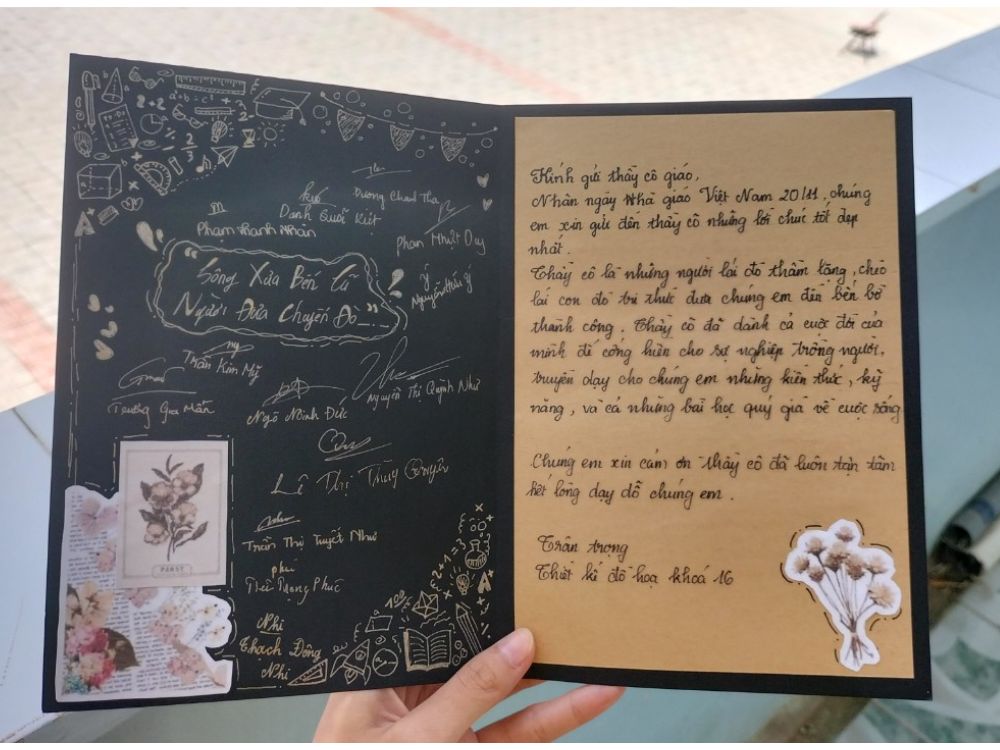 Dương Chanh Tha
kiệt
Danh Quốc Kiệt
Phạm Thanh Nhàn
Phan Nhựt Duy
ý
Nguyễn Như ý
"Sông Xưa Bến Cũ
Người Đưa Chuyến Đò"
my
Trần Kim Mỹ
Trương Gia Mẫn
Ngô Minh Đức
Nguyễn Thị Quỳnh Như
Lê Thị Thúy Quyên
Trần Thị Tuyết Như
phúc
Phúc
Nhi
Thạch Đông
Nhi
2+2
2+1=3
100%
Kính gửi thầy cô giáo,
Nhân ngày Nhà giáo Việt Nam 20/11, chúng
em xin gửi đến thầy cô những lời chúc tốt đẹp
nhất.
Thầy cô là những người lái đò thầm lặng, chèo
lái con đò tri thức đưa chúng em đến bến bờ
thành công. Thầy cô đã dành cả cuộc đời của
mình để cống hiến cho sự nghiệp trồng người,
truyền dạy cho chúng em những kiến thức, kỹ
năng, và cả những bài học quý giá về cuộc sống
Chúng em xin cảm ơn thầy cô đã luôn tận tâm
hết lòng dạy dỗ chúng em.
Trân trọng
Thiết kế đồ hoạ khoá 16